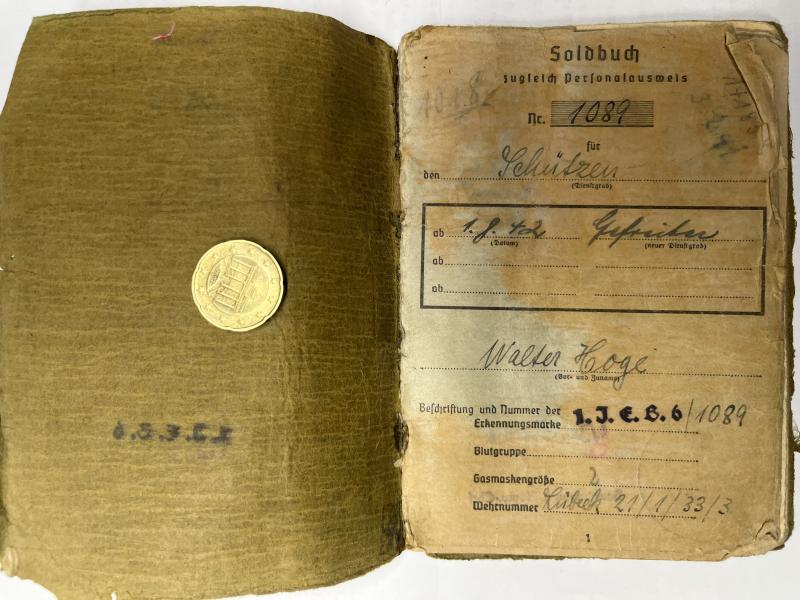 Soldbuch
zugleich Personalausweis
Nr. 1089
für
den Schützen
(Dienstgrad)
ab 1.8.42 Gefreiter
(Datum) (neuer Dienstgrad)
ab
ab
Walter Hoge
(Vor- und Zuname)
Beschriftung und Nummer der
Erkennungsmarke 1.J.E.B.6/1089
Blutgruppe
Gasmaskengröße 2
Wehrnummer Lübeck 21/1/33/3
1